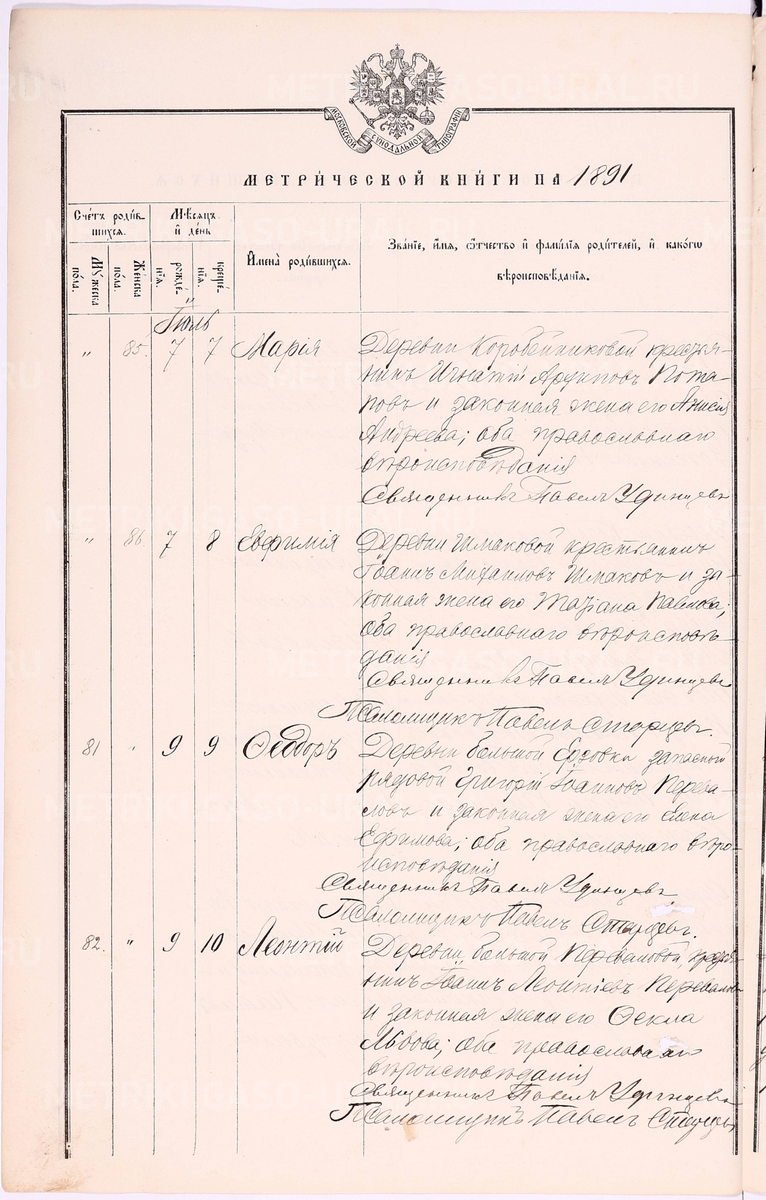 МОСКОВСКОЙ СѴНОДАЛЬНОЙ ТИПОГРАФІИ
МЕТРИ́ЧЕСКОЙ КНИ́ГИ НА 1891
Сче́тъ роди́в-
шихся.
Мѣ́сяцъ
и҆ де́нь
И҆мена̀ роди́вшихся.
Зва́нїе, и҆́мя, ѻ҆́тчество и҆ фами́лїя роди́телей, и҆ како́гѡ
вѣроисповѣ́данїя.
Мꙋ́жеска
по́ла.
Же́нска
по́ла.
рожде́-
нїя.
креще́-
нїя.
Іюль
„ 85. 7 7 Марія Деревни Коробейниковой крестья-
нинъ Игнатій Архиповъ Пота-
повъ и законная жена его Анисія
Андреева; оба православнаго
вѣроисповѣданія
Священникъ Павелъ Удинцевъ
„ 86. 7 8 Евфимія Деревни Шмаковой крестьянинъ
Іоаннъ Михаиловъ Шмаковъ и за-
конная жена его Татіана Павлова;
оба православнаго вѣроисповѣ-
данія
Священникъ Павелъ Удинцевъ
Псаломщикъ Павелъ Старцевъ.
81 „ 9 9 Ѳеодоръ Деревни Большой Ерзовки запасный
рядовой Григорій Іоанновъ Перева-
ловъ и законная жена его Елена
Ефимова; оба православнаго вѣро-
исповѣданія
Священникъ Павелъ Удинцевъ
Псаломщикъ Павелъ Старцевъ.
82. „ 9 10 Леонтій Деревни Большой Переваловой, крестья-
нинъ Іоаннъ Леонтіевъ Переваловъ
и законная жена его Ѳекла
Львова; оба православнаго
вѣроисповѣданія
Священникъ Павелъ Удинцевъ
Псаломщикъ Павелъ Старцевъ